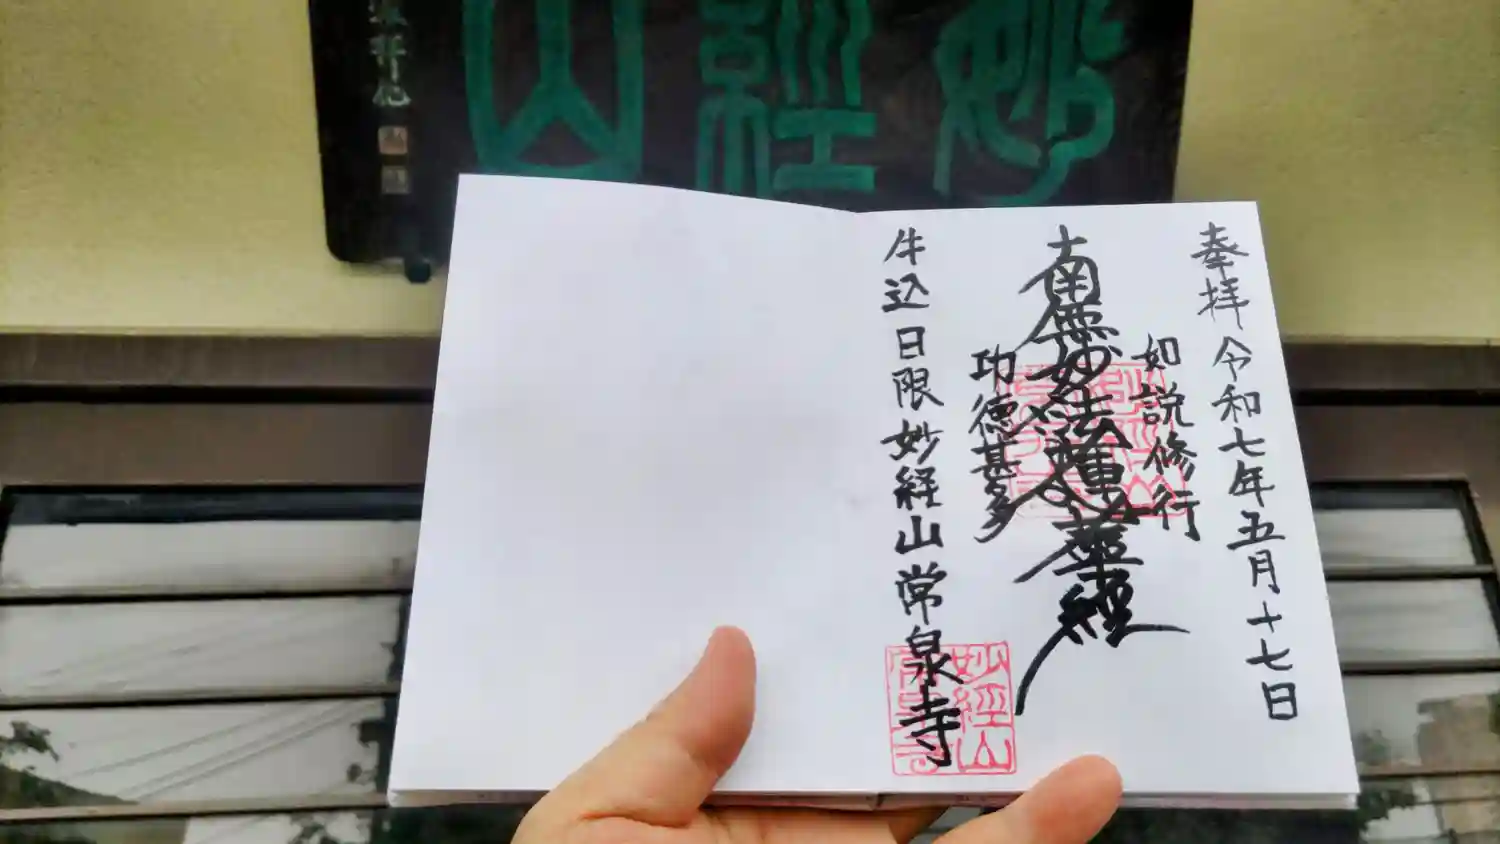 妙經山
奉拝 令和七年五月十七日
如説修行
南無妙法蓮華経
功徳甚多
牛込日限妙経山常泉寺
妙經山
常泉寺